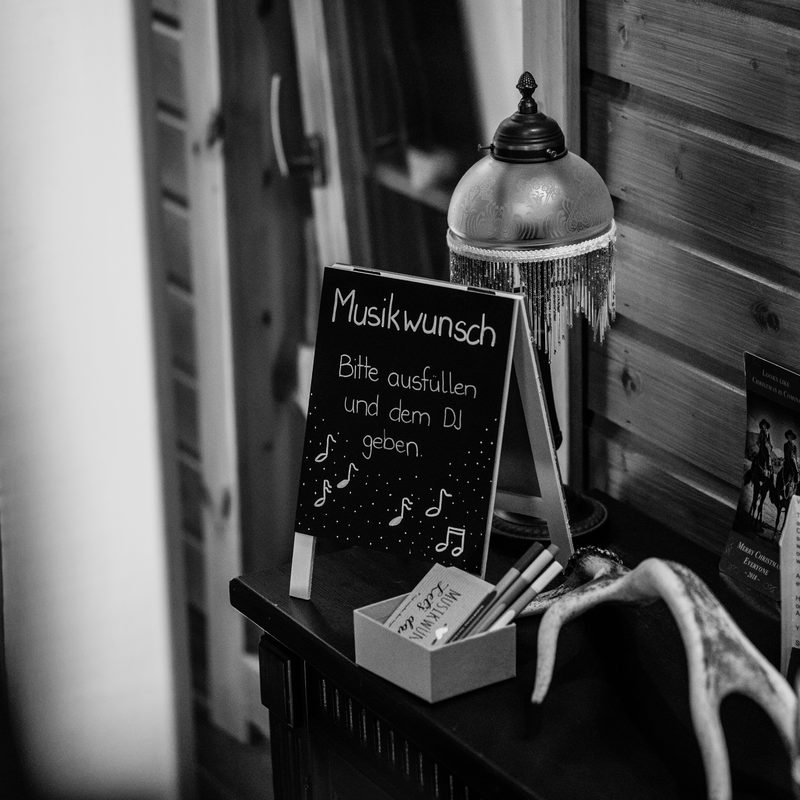 Musikwunsch
Bitte ausfüllen
und dem DJ
geben.
MUSIKWUN
Let's da
LOOKS LIKE
CHRISTMAS IS COMIN
MERRY CHRISTMA
EVERYONE